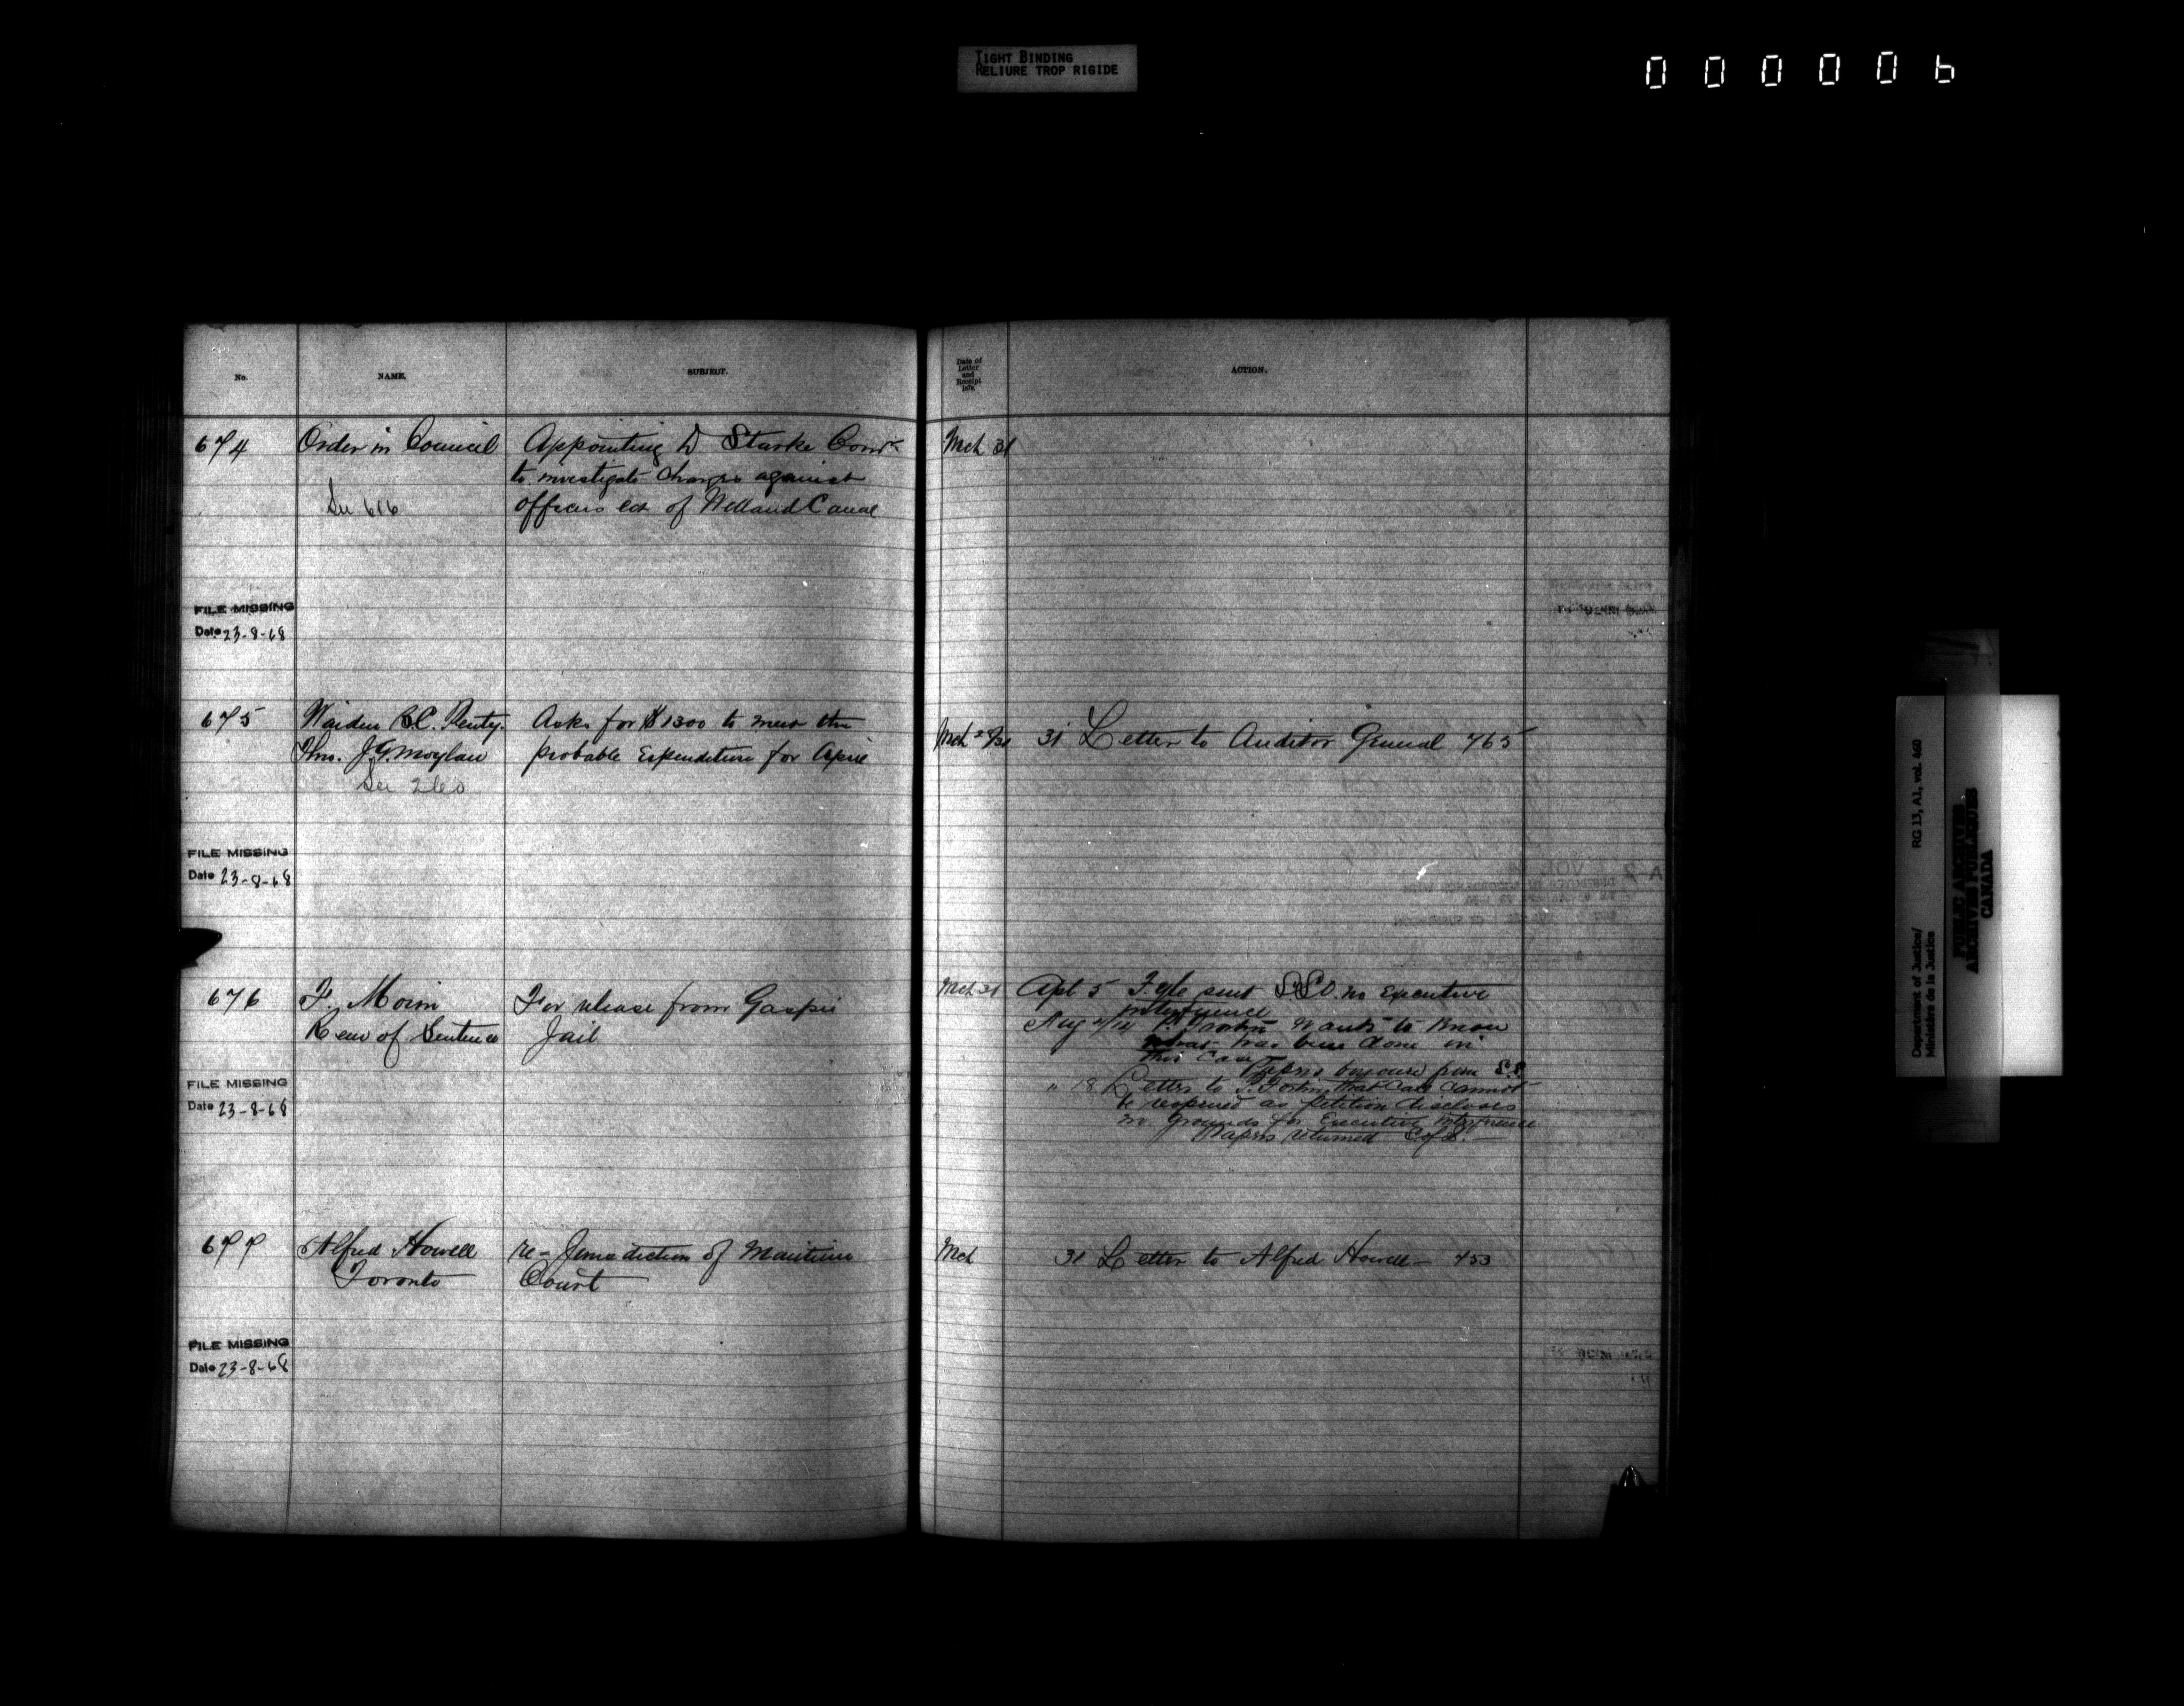 TIGHT BINDING
RELIURE TROP RIGIDE
000006
No.
NAME.
SUBJECT.
Date of
Letter
and
Receipt
187
ACTION.
674 Order in Council Appointing D Starke Comr Mch 31
to investigate charges against
See 616 officers &c of Welland Canal
FILE MISSING
Date 23-8-68
675 Warden B.C. Penty. Asks for $1300 to meet the Mch 28/31 31 Letter to Auditor General 765
Thro. J.G. Moylan probable Expenditure for April
See 260
FILE MISSING
Date 23-8-68
676 F. Morin For release from Gaspé Mch 31 Apl 5 File sent no Executive
Rem of Sentence Jail
interference
Aug wants to know
what has been done in
this case
Papers borrowed from S.S.
" 18 Letter to P. Fortin that case cannot
be reopened as petition discloses
no grounds for Executive Interference
Papers returned S of S.
FILE MISSING
Date 23-8-68
677 Alfred Howell re- Jurisdiction of Maritime Mch 31 Letter to Alfred Howell - 753
Toronto Court
FILE MISSING
Date 23-8-68
Department of Justice/
Ministère de la Justice
RG 13, A1, vol. 460
PUBLIC ARCHIVES
ARCHIVES PUBLIQUES
CANADA